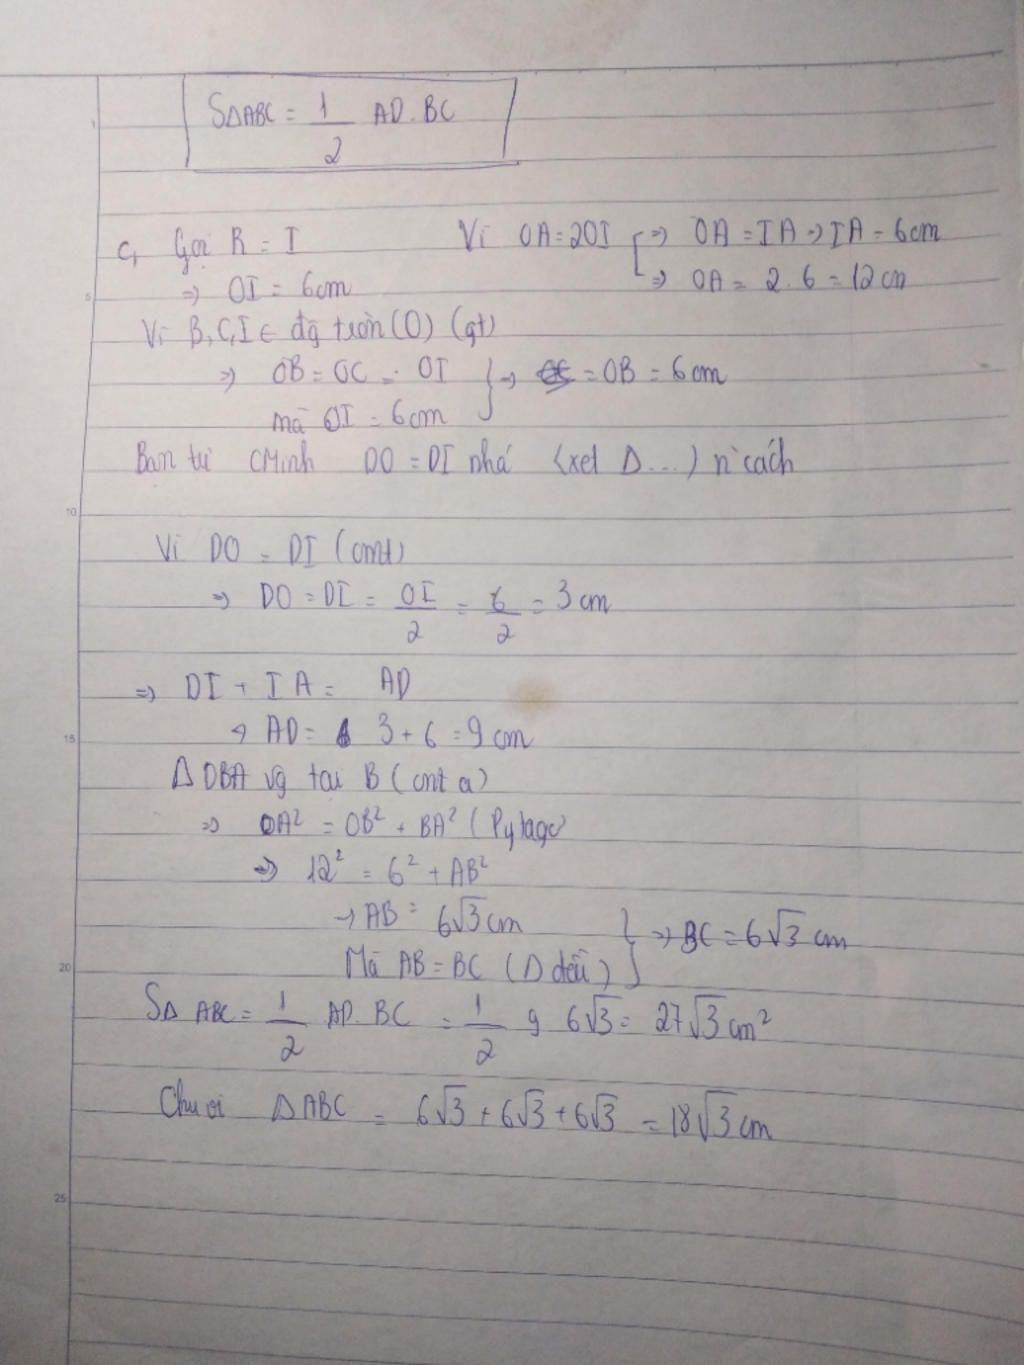 S∆ABC = 1/2 AD . BC
c, Gọi R = I
Vì OA = 2OI ⇒ OA = IA ⇒ IA = 6cm
⇒ OI = 6cm
⇒ OA = 2.6 = 12 cm
Vì B, C, I ∈ đg tròn (O) (gt)
⇒ OB = OC = OI } ⇒ = OB = 6cm
mà OI = 6cm
Bạn tự CMinh DO = DI nhá (xét ∆...) n` cách
Vì DO = DI (cmt)
⇒ DO = DI = OI/2 = 6/2 = 3 cm
⇒ DI + IA = AD
⇒ AD = 3 + 6 = 9 cm
∆ OBA vg tại B (cmt a)
⇒ OA² = OB² + BA² (Pytago
⇒ 12² = 6² + AB²
→ AB = 6√3 cm } ⇒ BC = 6√3 cm
Mà AB = BC (∆ đều)
S∆ ABC = 1/2 AD. BC = 1/2 9 6√3 = 27√3 cm²
Chu vi ∆ABC = 6√3 + 6√3 + 6√3 = 18√3 cm
5
10
15
20
25